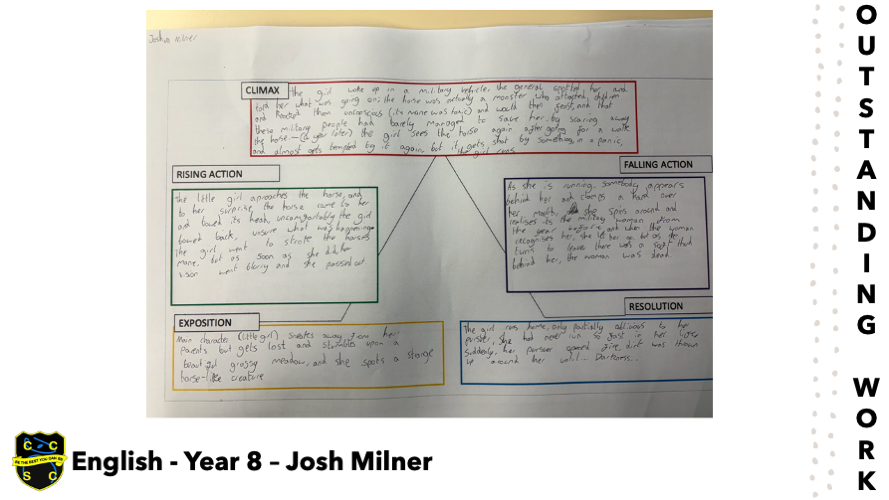 Joshua Milner
CLIMAX
the girl woke up in a military vehicle, the general spotted her and
told her what was going on; the horse was actually a monster who attacked children
and knocked them unconscious (its mane was toxic) and would then feast, and that
these military people had barely managed to save her by scaring away
the horse - (a year later) the girl sees the horse again after going for a walk
and almost gets tempted by it again, but it gets shot by something, in a panic,
the girl runs
RISING ACTION
The little girl aproaches the horse, and
to her surprise, the horse came to her
and bowed its head, uncomfortably the girl
bowed back, unsure what was happening
The girl went to stroke the horses
mane, but as soon as she did, her
vison went blurry and she passed out
FALLING ACTION
As she is running somebody appears
behind her and clamps a hand over
her mouth, she spins around and
realises its the military woman from
the year before and when the woman
recognises her, she let her go, but as she
turns to leave there was a shot
behind her, the woman was dead.
EXPOSITION
Main character (little girl) sneaks away from her
parents but gets lost and stumbles upon a
beautiful grassy meadow, and she spots a strange
horse-like creature
RESOLUTION
The girl runs home, only partially oblivious to her
pursuer, she had never run so fast in her life,
suddenly, her pursuer opened fire, dirt was thrown
up around her until... Darkness...
C C
BE THE BEST YOU CAN BE
S C
English - Year 8 – Josh Milner
OUTSTANDING WORK